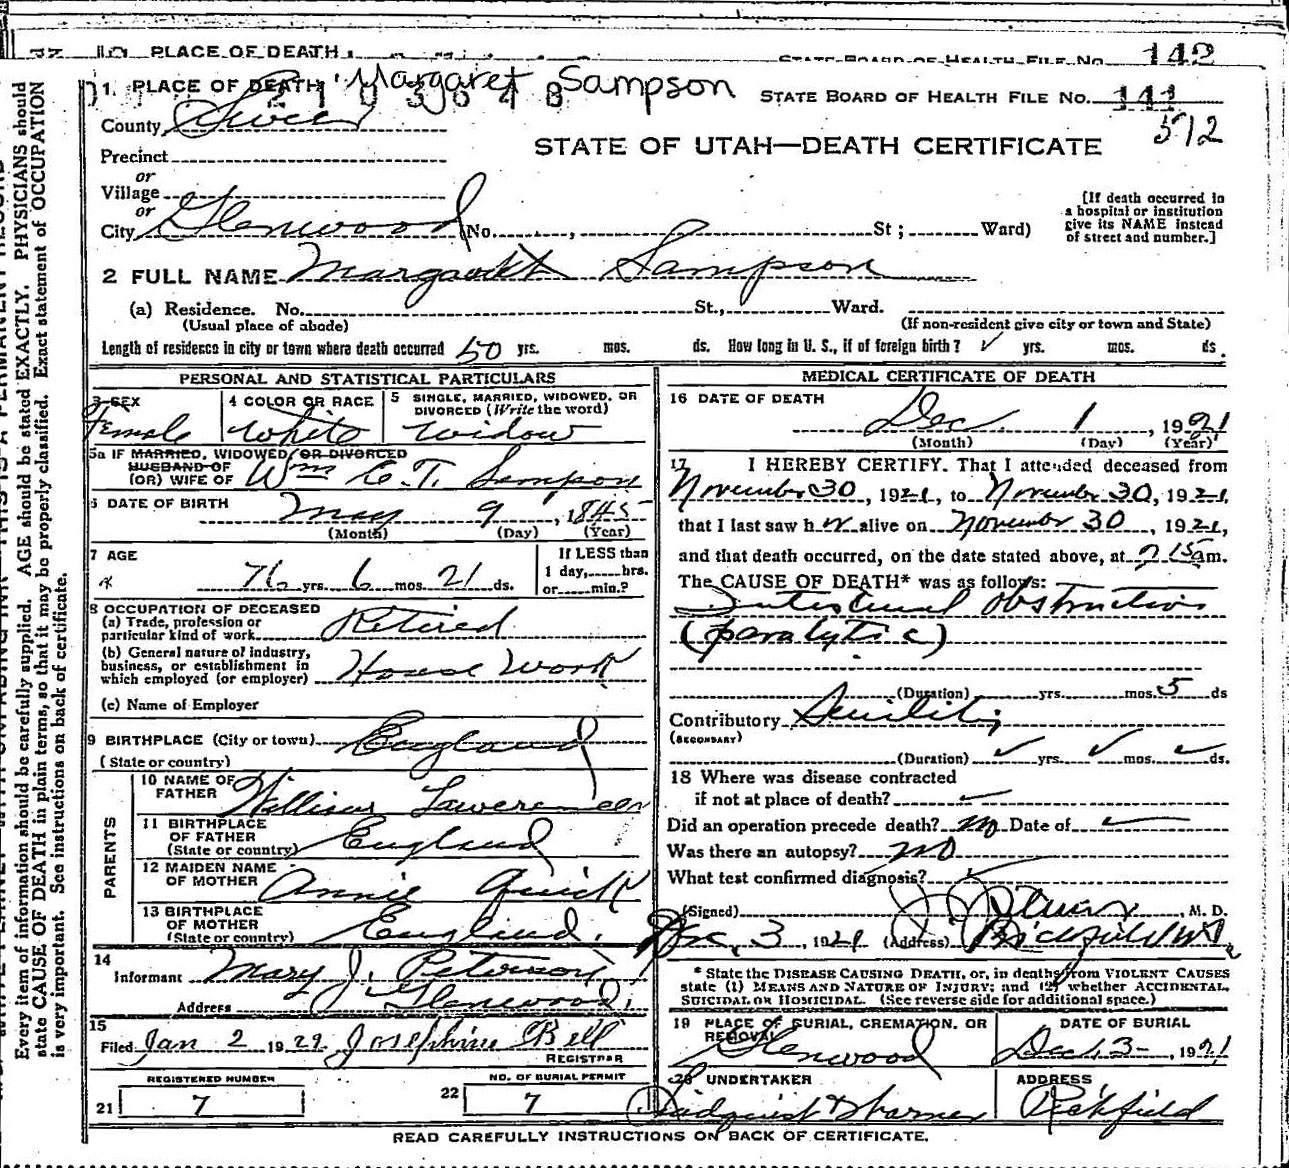 PLACE OF DEATH
STATE BOARD OF HEALTH FILE No. 142
1. PLACE OF DEATH Margaret Sampson STATE BOARD OF HEALTH FILE No. 141
572
County Sevier
STATE OF UTAH—DEATH CERTIFICATE
Precinct
or
Village
or
City Glenwood (No. , St ; Ward)
[If death occurred in
a hospital or institution
give its NAME instead
of street and number.]
2 FULL NAME Margarett Sampson
(a) Residence. No. St., Ward.
(Usual place of abode) (If non-resident give city or town and State)
Length of residence in city or town where death occurred 50 yrs. mos. ds. How long in U. S., if of foreign birth? ✓ yrs. mos. ds.
PERSONAL AND STATISTICAL PARTICULARS
3 SEX
Female
4 COLOR OR RACE
White
5 SINGLE, MARRIED, WIDOWED, OR
DIVORCED (Write the word)
Widow
5a IF MARRIED, WIDOWED, OR DIVORCED
HUSBAND OF
(OR) WIFE OF Wm C. T. Sampson
6 DATE OF BIRTH
May 9, 1845
(Month) (Day) (Year)
7 AGE
76 yrs. 6 mos. 21 ds.
If LESS than
1 day, hrs.
or min.?
8 OCCUPATION OF DECEASED
(a) Trade, profession or
particular kind of work Retired
(b) General nature of industry,
business, or establishment in
which employed (or employer) House Work
(c) Name of Employer
9 BIRTHPLACE (City or town) England
(State or country)
PARENTS
10 NAME OF
FATHER William
11 BIRTHPLACE
OF FATHER
(State or country) England
12 MAIDEN NAME
OF MOTHER Annie Quick
13 BIRTHPLACE
OF MOTHER
(State or country) England.
14
Informant Mary J. Peterson
Address Glenwood.
15
Filed Jan 2 1922 Josephine Bell
REGISTRAR
REGISTERED NUMBER
21 7
NO. OF BURIAL PERMIT
22 7
MEDICAL CERTIFICATE OF DEATH
16 DATE OF DEATH
Dec. 1, 1921
(Month) (Day) (Year)
17 I HEREBY CERTIFY. That I attended deceased from
November 30, 1921, to November 30, 1921,
that I last saw her alive on November 30, 1921,
and that death occurred, on the date stated above, at 715am.
The CAUSE OF DEATH* was as follows:
Intestinal obstruction
(paralytic)
(Duration) yrs. mos. 5 ds
Contributory Senility
(SECONDARY)
(Duration) ✓ yrs. ✓ mos. ✓ ds.
18 Where was disease contracted
if not at place of death? ✓
Did an operation precede death? no Date of ✓
Was there an autopsy? no
What test confirmed diagnosis? ✓
(Signed) M. D.
Dec. 3, 1921 (Address) Richfield Ut
* State the DISEASE CAUSING DEATH, or, in deaths from VIOLENT CAUSES
state (1) MEANS AND NATURE OF INJURY; and (2) whether ACCIDENTAL,
SUICIDAL OR HOMICIDAL. (See reverse side for additional space.)
19 PLACE OF BURIAL, CREMATION, OR
REMOVAL
Glenwood
DATE OF BURIAL
Dec. 3, 1921
20 UNDERTAKER
ADDRESS
Richfield
READ CAREFULLY INSTRUCTIONS ON BACK OF CERTIFICATE.
Every item of information should be carefully supplied. AGE should be stated EXACTLY. PHYSICIANS should
state CAUSE OF DEATH in plain terms, so that it may be properly classified. Exact statement of OCCUPATION
is very important. See instructions on back of certificate.